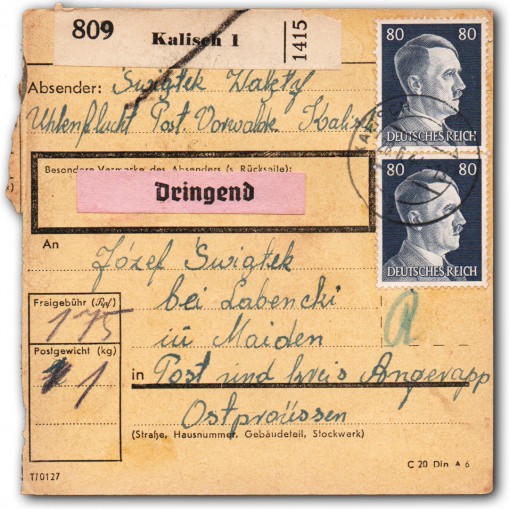 809 Kalisch 1 1415
80 80
DEUTSCHES REICH
80 80
DEUTSCHES REICH
Absender: Swigtek
Post. Vorwalde Kalisch
Besondere Vermerke des Absenders (s. Rückseite):
Dringend
An Józef Swigtek
bei Labencki
in Maiden
in Post und kreis Angerapp
Ostpreüssen
(Straße, Hausnummer, Gebäudeteil, Stockwerk)
Freigebühr (Rpf)
175
Postgewicht (kg)
1
T/0127
C 20 Din A 6